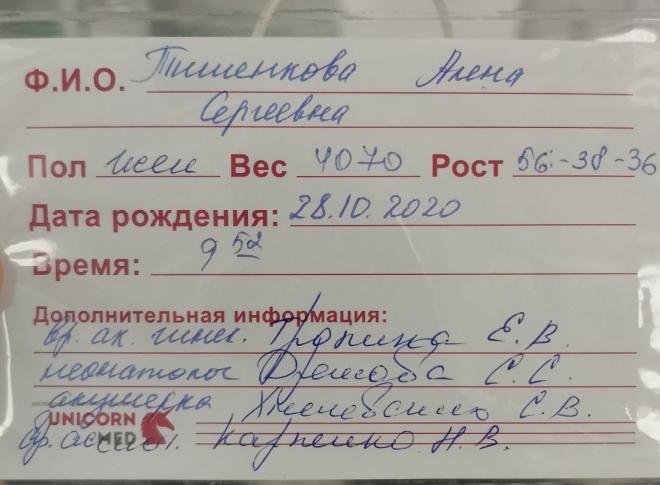 Ф.И.О. Тишенкова Алена
Сергеевна
Пол жен Вес 4070 Рост 56-38-36
Дата рождения: 28.10.2020
Время: 9 52
Дополнительная информация:
вр. ак. гинек. Тропина Е.В.
неонатолог С.С.
акушерка С.В.
UNICORN
MED
Карпенко Н.В.